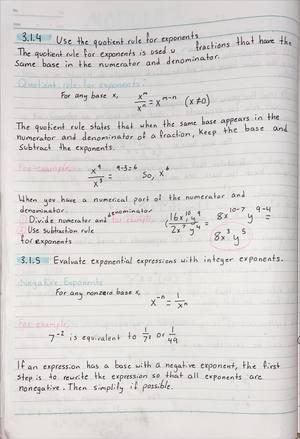 3.1.4 Use the quotient rule for exponents
The quotient rule for exponents is used fractions that have the
same base in the numerator and denominator.
Quotient rule for exponents:
For any base x, x^m/x^n = x^(m-n) (x≠0)
The quotient rule states that when the same base appears in the
numerator and denominator of a fraction, keep the base and
subtract the exponents.
For example,
x^9/x^3 = 9-3=6 So, x^6
When you have a numerical part of the numerator and
denominator.
① Divide numerator and denominator
② Use subtraction rule
for exponents
for example,
(16x^10 y^9)/(2x^7 y^4) = 8x^(10-7) y^(9-4) =
8x^3 y^5
3.1.5 Evaluate exponential expressions with integer exponents.
Negative Exponents
For any nonzero base x,
x^-n = 1/x^n
For example,
7^-2 is equivalent to 1/7^2 or 1/49
If an expression has a base with a negative exponent, the first
step is to rewrite the expression so that all exponents are
nonegative. Then simplify if possible.